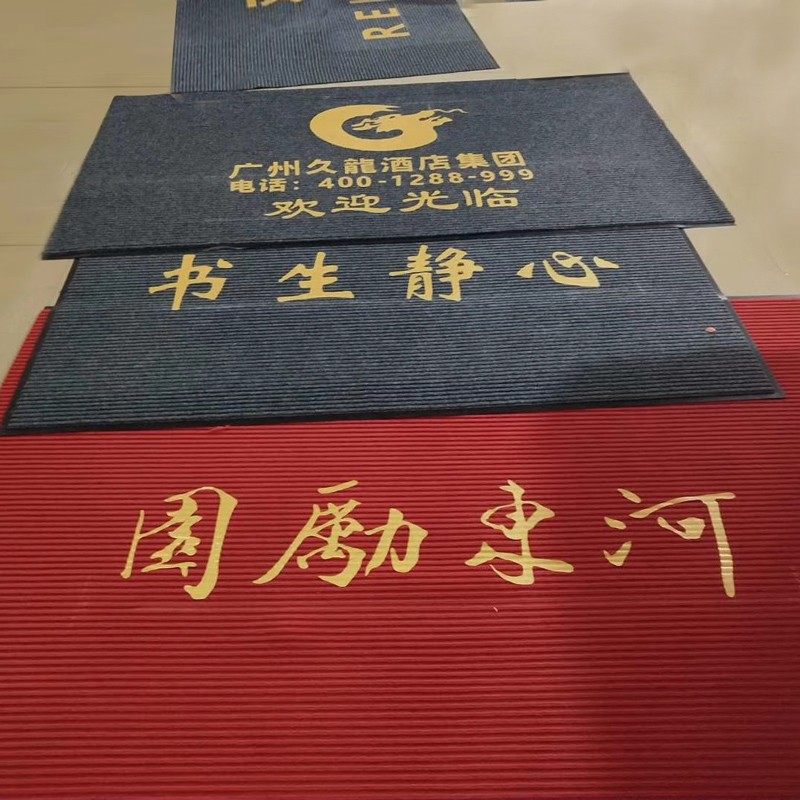 RE
广州久龍酒店集团
电话：400-1288-999
欢迎光临
书生静心
園勵東河